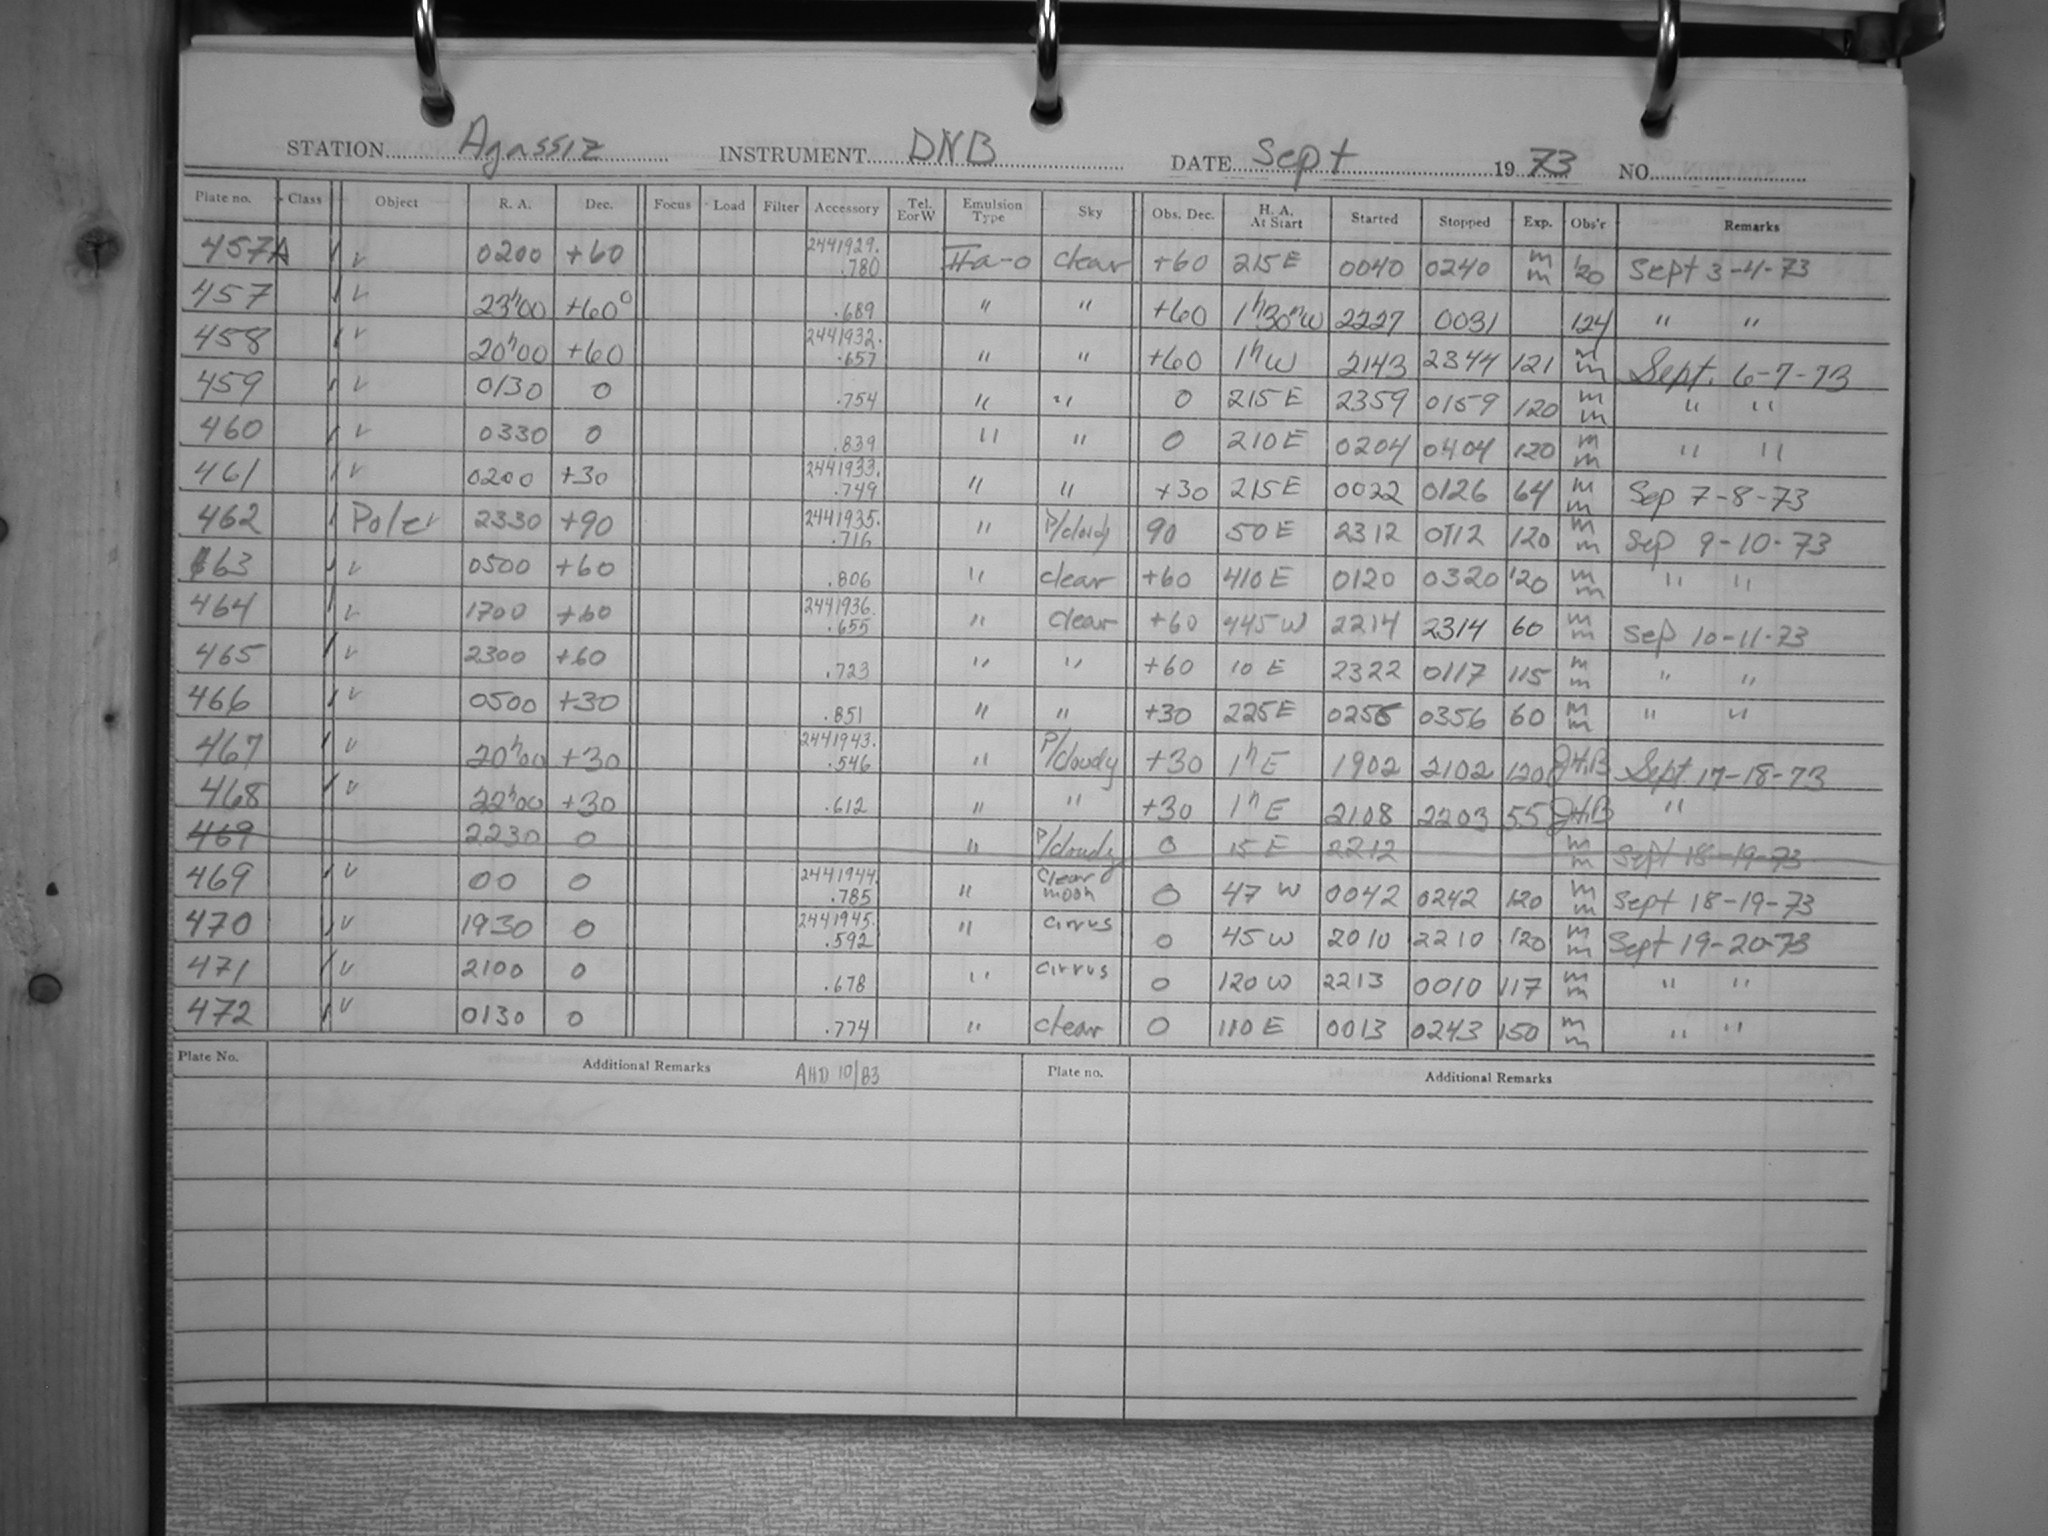 STATION Agassiz INSTRUMENT DNB DATE Sept 19 73 NO.
Plate no. Class Object R. A. Dec. Focus Load Filter Accessory Tel. E or W Emulsion Type Sky Obs. Dec. H. A. At Start Started Stopped Exp. Obs'r Remarks
457A 0200 +60 2441929. .780 IIa-o clear +60 215 E 0040 0240 120 Sept 3-4-73
457 23h00 +60° .689 " " +60 1h30mW 2227 0031 124 " "
458 20h00 +60 2441932. .657 " " +60 1h W 2143 2344 121 m m Sept. 6-7-73
459 0130 0 .754 " " 0 215 E 2359 0159 120 m m " "
460 0330 0 .839 " " 0 210 E 0204 0404 120 m m " "
461 0200 +30 2441933. .749 " " +30 215 E 0022 0126 64 m m Sep 7-8-73
462 Pole 2330 +90 2441935. .716 " P/cloudy 90 50 E 2312 0112 120 m m Sep 9-10-73
463 0500 +60 .806 " clear +60 410 E 0120 0320 120 m m " "
464 1700 +60 2441936. .655 " clear +60 445 W 2214 2314 60 m m Sep 10-11-73
465 2300 +60 .723 " " +60 10 E 2322 0117 115 m m " "
466 0500 +30 .851 " " +30 225 E 0256 0356 60 m m " "
467 20h00 +30 2441943. .546 " P/cloudy +30 1h E 1902 2102 120 JHB Sept 17-18-73
468 22h00 +30 .612 " " +30 1h E 2108 2203 55 JHB "
469 2230 0 " P/cloudy 0 15 E 2212 m m Sept 18-19-73
469 00 0 2441944. .785 " clear moon 0 47 W 0042 0242 120 m m Sept 18-19-73
470 1930 0 2441945. .592 " cirrus 0 45 W 2010 2210 120 m m Sept 19-20-73
471 2100 0 .678 " cirrus 0 120 W 2213 0010 117 m m " "
472 0130 0 .774 " clear 0 110 E 0013 0243 150 m m " "
Plate No. Additional Remarks AHD 10/83 Plate no. Additional Remarks